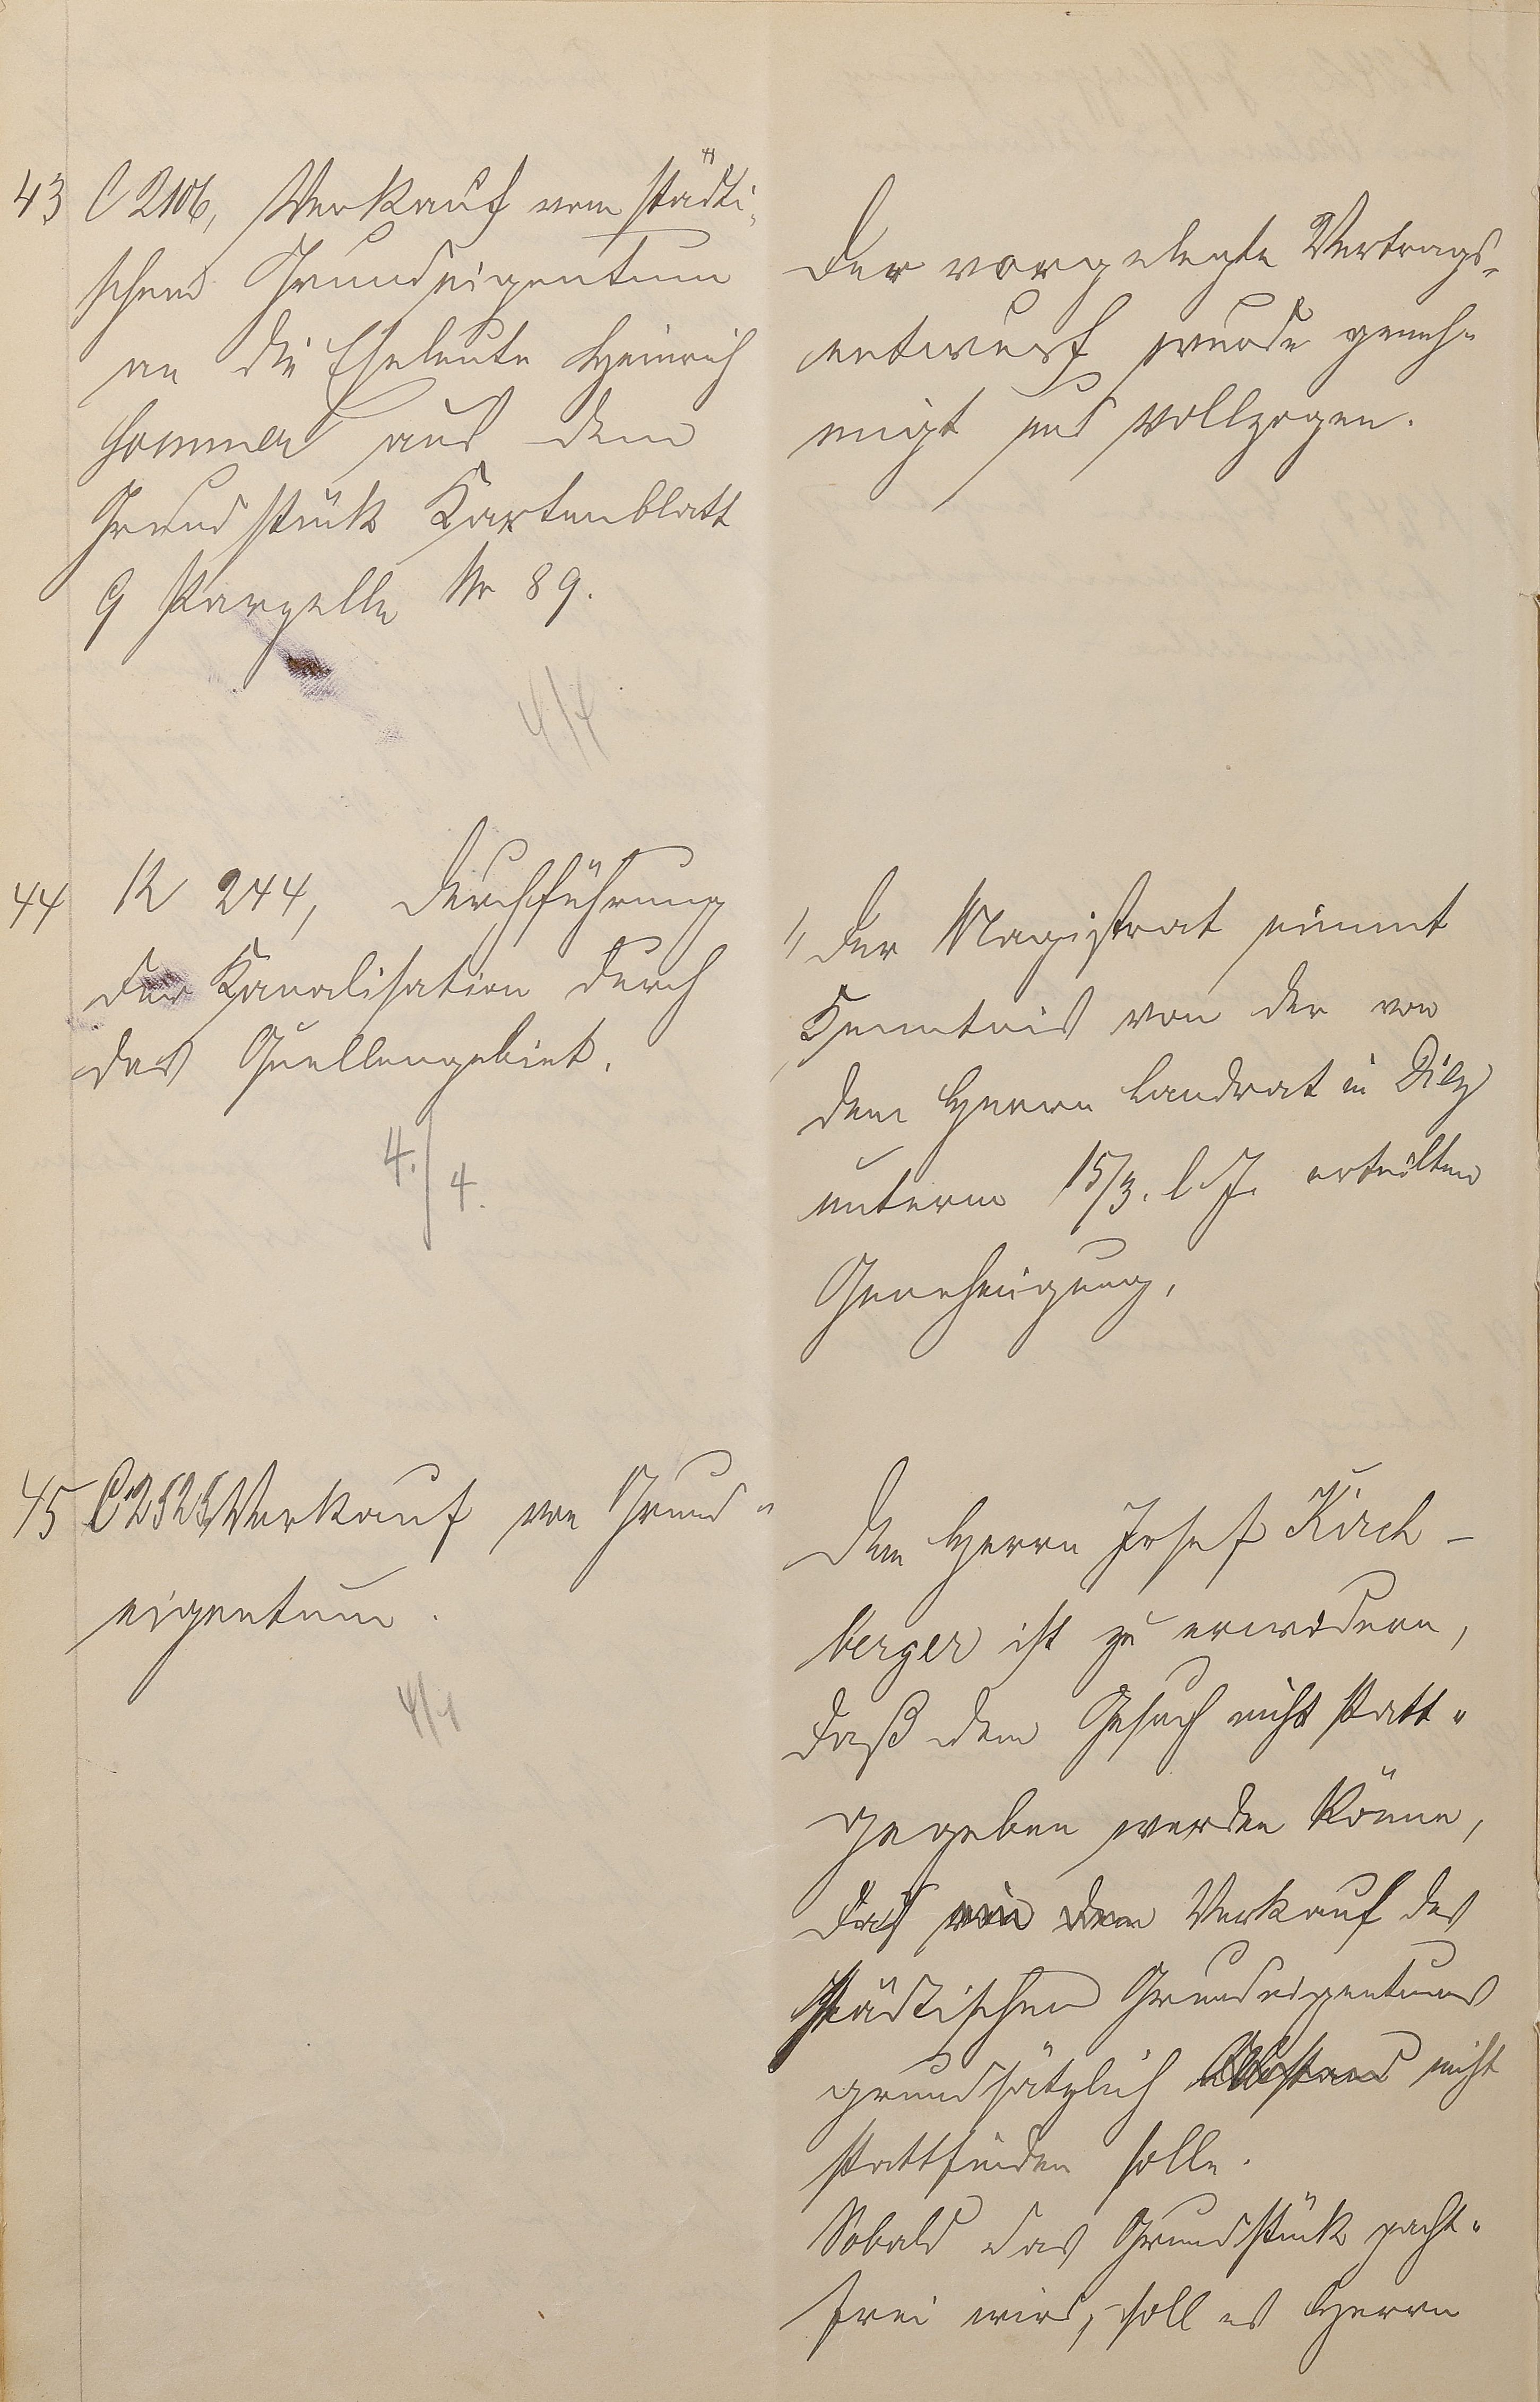 43 C 2106, Verkauf vom städti-
schen Grundeigentum
an die Eheleute Heinrich
Hommer aus dem
Grundstück Kartenblatt
9 Parzelle Nr 89.
4/4
Der vorgelegte Vertrags-
entwurf wurde geneh-
migt und vollzogen.
44 K 244, Durchführung
der Kanalisation durch
das Quellengebiet.
4./4.
1, Der Magistrat nimmt
Kenntnis von der von
dem Herrn Landrat in Diez
unterm 15/3. l. J. erteilten
Genehmigung.
45 C 2525 Verkauf von Grund-
eigentum.
4/4
Dem Herrn Josef Kirch-
berger ist zu erwidern,
daß dem Gesuch nicht statt-
gegeben werden könne,
daß ein Verkauf des
städtischen Grundeigentums
grundsätzlich nicht
stattfinden solle.
Sobald das Grundstück pacht-
frei wird, soll es Herrn